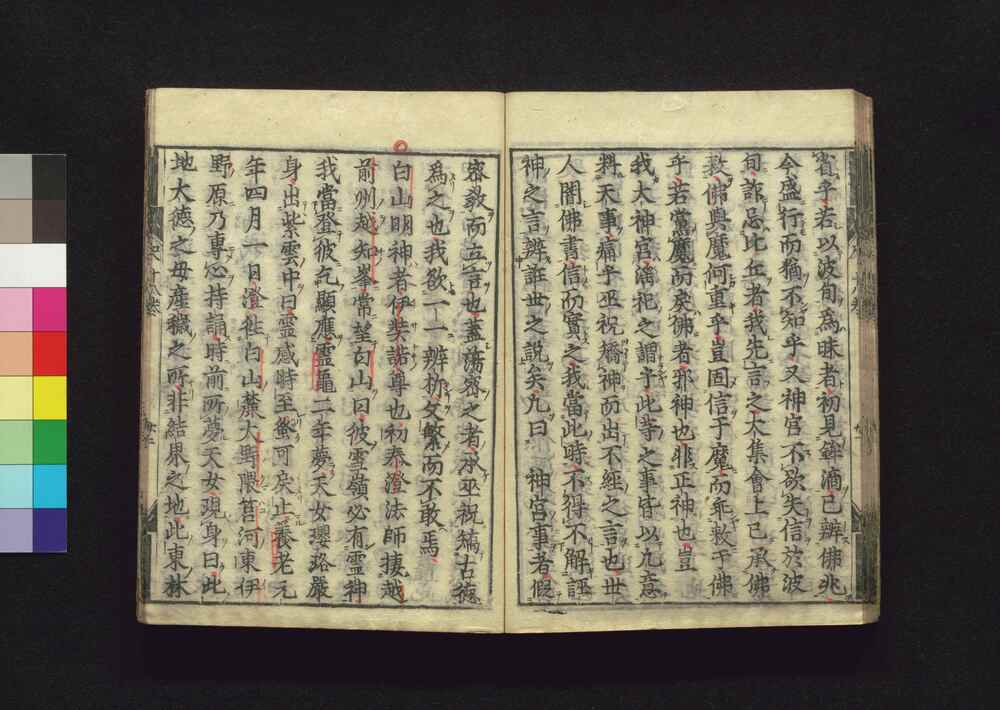 省乎若以波旬爲昧者初見鉾滴已辨佛兆
今盛行而猶不知乎又神宮不欲失信於波
旬詐忌比丘者我先言之大集會上已承佛
敎佛與魔何重乎豈固信于魔而乖敎于佛
乎若黨魔而戾佛者邪神也非正神也豈
我大神宮之謂乎此等之事皆以凡意
料天事痛乎巫祝矯神而出不經之言也世
人闇佛書信而實之我當此時不得不解誣
神之言辨詐世之說矣凡曰神宮事者假
密敎而立言也蓋蕩密之者承巫祝矯古德
爲之也我欲一一辨柝文繁而不敢焉
白山明神者伊弉諾尊也初泰澄法師棲越
前州越知峯常望白山曰彼雪嶺必有靈神
我當登彼乞顯應靈龜二年夢天女瓔珞嚴
身出紫雲中曰靈感時至蚤可戾止養老元
年四月一日澄徃白山麓大野隈筥河東伊
野原乃專心持誦時前所夢天女現身曰此
地大德之母產穢之所非結界之地此東林